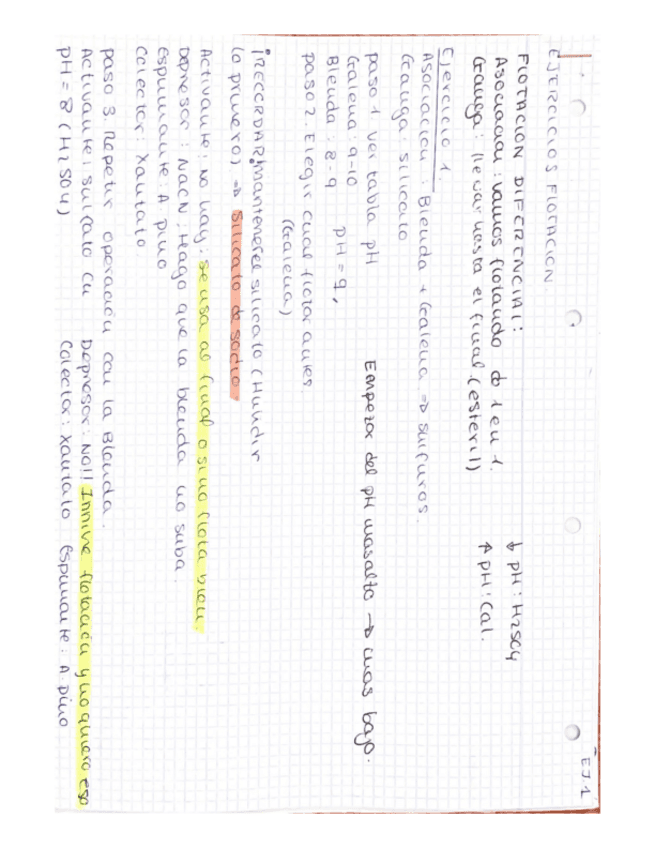 EJ.1
EJERCICIOS FLOTACION.
FLOTACION DIFERENCIAL:
Asociación: vamos flotando d 1 en 1.
Ganga: llevar hasta el final. (esteril)
↓ pH: H2SO4
↑ pH: Cal.
Ejercicio 1.
Asociación Blenda + Galena ⇒ Sulfuros.
Ganga: silicato
paso 1 ver tabla pH
Galena: 9-10
Blenda: 8-9
pH = 9,
Empezar del pH mas alto → mas bajo.
paso 2. Elegir cual flotar antes.
(Galena)
¡RECORDAR! mantener el silicato (Hundir
lo primero) ⇒ Silicato de sodio.
Activante: no hay; se usa al final o si no flota bien.
Depresor: NaCN; Hago que la blenda no suba.
Espumante: A. pino
Colector: Xantato.
paso 3. Repetir operación con la Blenda.
Activante: sulfato Cu
Depresor: NO!! Inhibe flotación y no quiero eso
pH = 8 (H2SO4)
Colector: Xantato
Espumante: A. pino